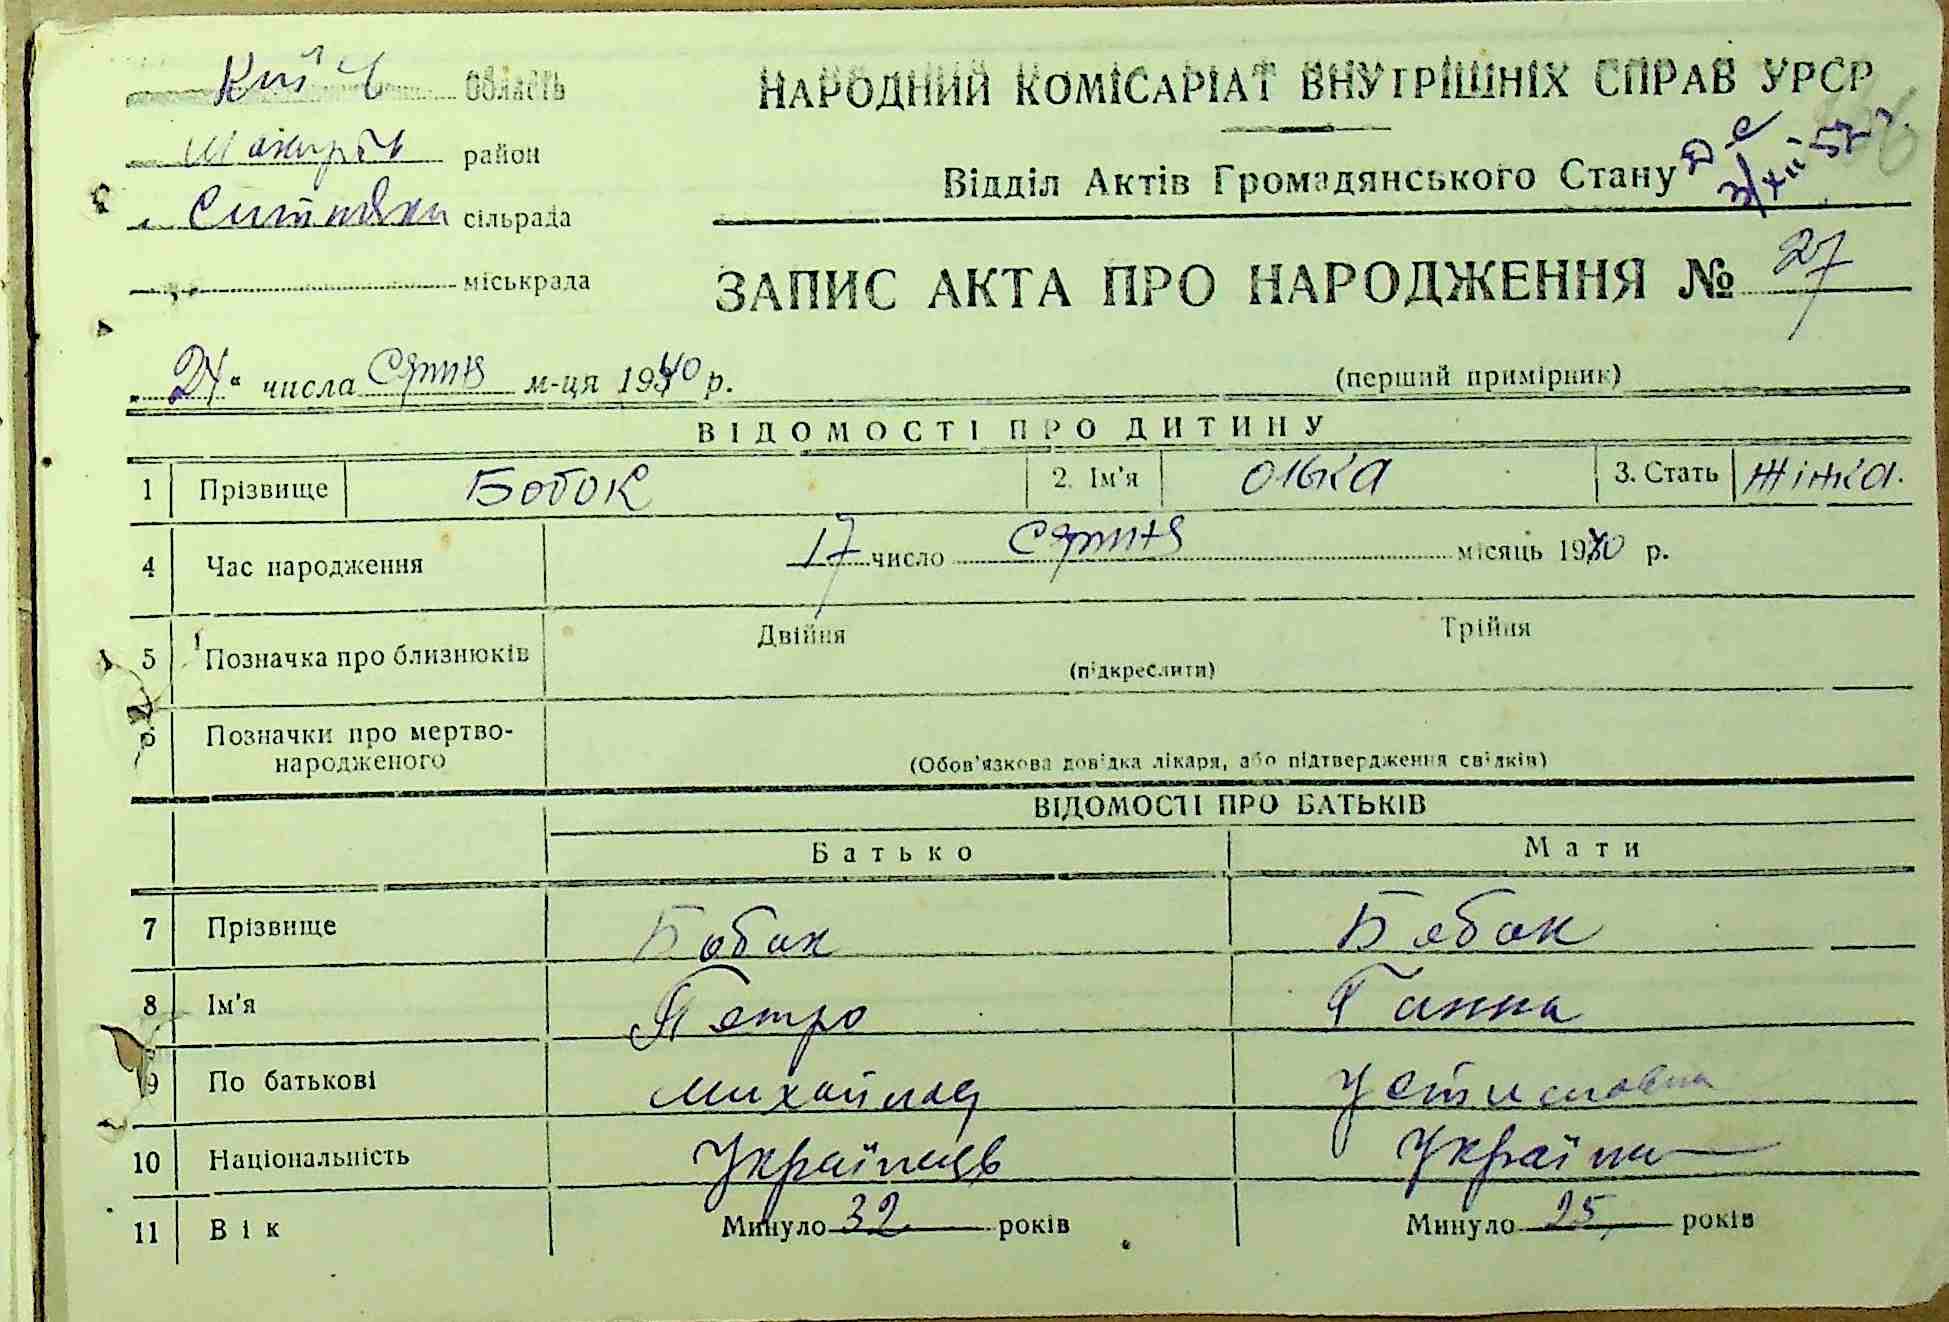 Київ область
НАРОДНИЙ КОМІСАРІАТ ВНУТРІШНІХ СПРАВ УРСР
Макарів район
Відділ Актів Громадянського Стану
Ситняки сільрада
3/XII 57
міськрада
ЗАПИС АКТА ПРО НАРОДЖЕННЯ № 27
„24“ числа Серпня м-ця 1940 р.
(перший примірник)
ВІДОМОСТІ ПРО ДИТИНУ
1 Прізвище Бобок 2. Ім'я Олька 3. Стать жінка.
4 Час народження 17 число Серпня місяць 1940 р.
5 Позначка про близнюків Двійня Трійня
(підкреслити)
6 Позначки про мертво-
народженого (Обов'язкова довідка лікаря, або підтвердження свідків)
ВІДОМОСТІ ПРО БАТЬКІВ
Батько Мати
7 Прізвище Бобок Бобок
8 Ім'я Петро Ганна
9 По батькові
10 Національність Українець Україн
11 Вік Минуло 32 років Минуло 25 років